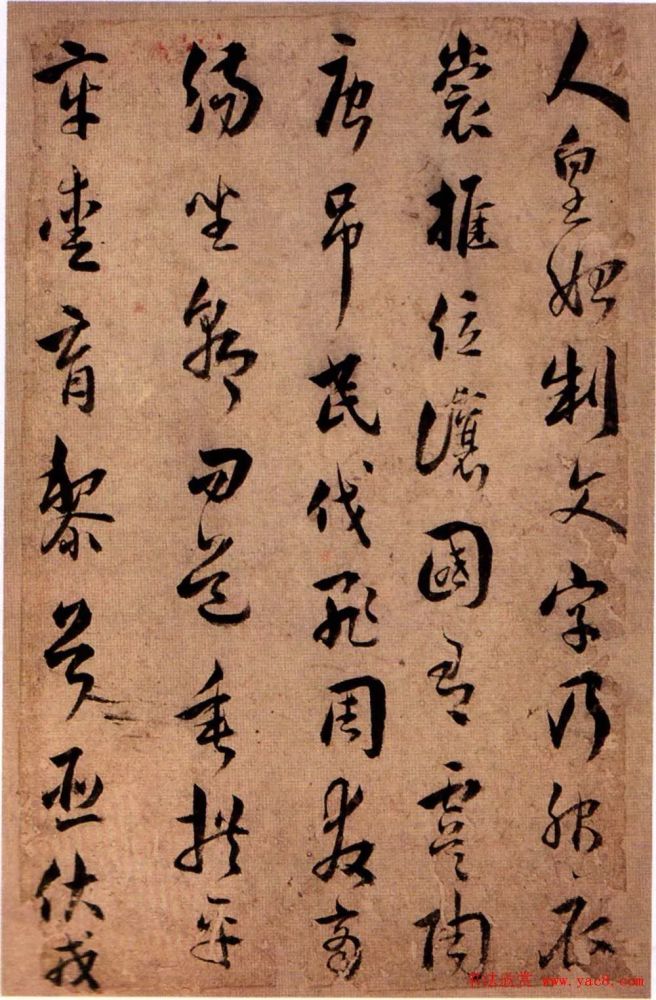 人皇始制文字乃服衣
裳推位讓國有虞陶
唐吊民伐罪周發商
湯坐朝問道垂拱平
章愛育黎首臣伏戎
书法欣赏 www.yac8.com